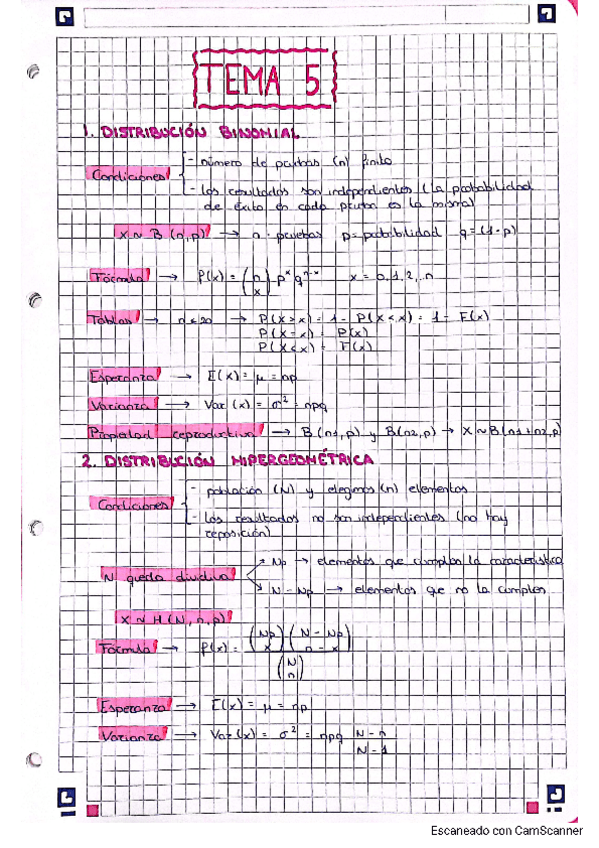 TEMA 5
1. DISTRIBUCIÓN BINOMIAL
Condiciones
- número de pruebas (n) finito
- los resultados son independientes (la probabilidad
de éxito en cada prueba es la misma)
X ~ B (n,p) → n = pruebas p = probabilidad q = (1-p)
Fórmula → P(x) = (n x) · p^x q^n-x x = 0,1,2,..n
Tablas → n < 20 → P(X>x) = 1 - P(X<x) = 1 - F(x)
P(X=x) = P(x)
P(X<x) = F(x)
Esperanza → E(x) = μ = np
Varianza → Var (x) = σ² = npq
Propiedad reproductiva → B(n1,p) y B(n2,p) → X ~ B(n1+n2,p)
2. DISTRIBUCIÓN HIPERGEOMÉTRICA
Condiciones
- población (N) y elegimos (n) elementos
- Los resultados no son independientes (no hay
reposición)
N queda dividida
Np → elementos que cumplen la característica
N - Np → elementos que no la cumplen
X ~ H (N, n, p)
Fórmula → P(x) = (Np x) (N - Np n - x)
(N n)
Esperanza → E(x) = μ = np
Varianza → Var (x) = σ² = npq N - n
N - 1
Escaneado con CamScanner